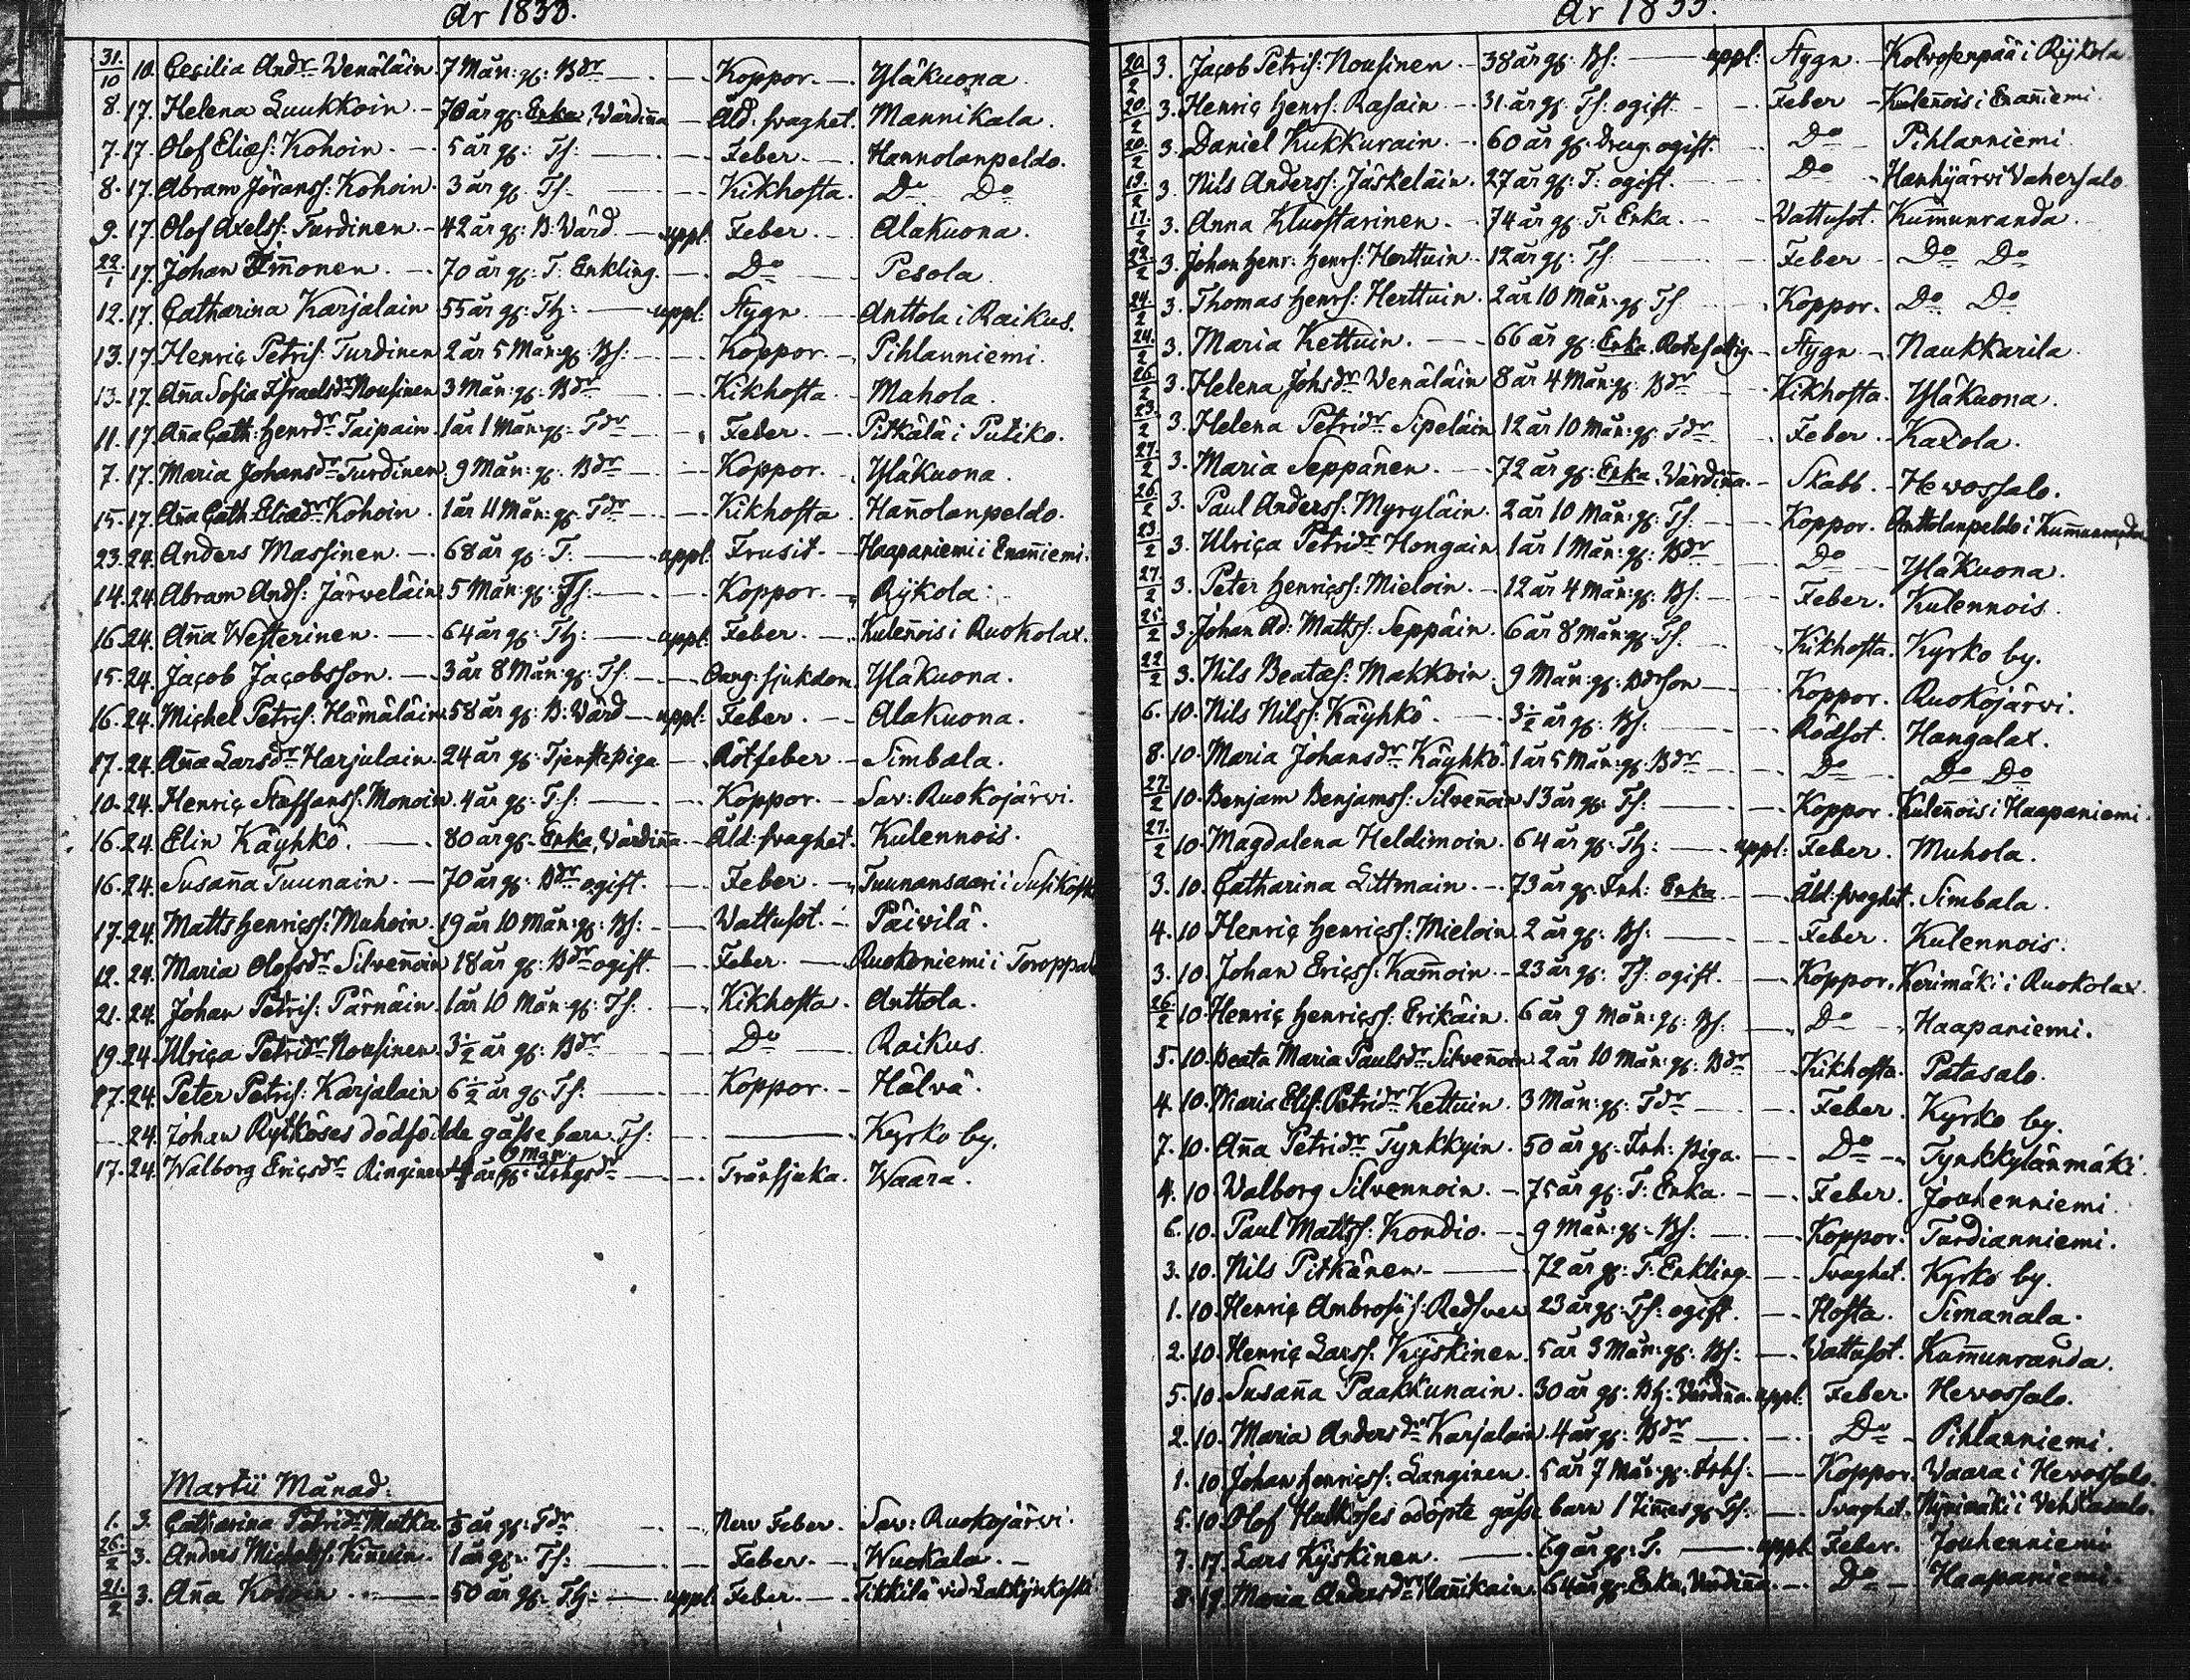 År 1833.
31/10 10. Cecilia Andr Wenäläin 7 Mån: gl: Bdr — Koppor. — Yläkuona
8. 17. Helena Luukkoin — 70 år gl: Enka, Värdinna — Åld: svaghet. Mannikala.
7. 17. Olof Elias: Kohoin. — 5 år gl: Ts: — Feber. — Hannolanpeldo.
8. 17. Abram Göranss: Kohoin. 3 år gl. Ts. — Kikhosta. Do Do
9. 17. Olof Axelss: Turdinen — 42 år gl: B: Värd. — uppl: Feber. — Alakuona.
22/1 17. Johan Immonen. — 70 år gl: T: Enkling. — Do — Pesola
12. 17. Catharina Karjalain 55 år gl: Th: — uppl: Stygn — Anttola i Raikus.
13. 17. Henric Petris: Turdinen 2 år 5 Mån: gl: Bs: — Koppor. — Pihlanniemi.
13. 17. Anna Sofia Israelsdr Nousinen 3 Mån: gl: Bdr — Kikhosta. Muhola.
11. 17. Anna Cath: Henrdr Taipain. 1 år 1 Mån: gl: Tdr — Feber. — Pitkälä i Putiko.
7. 17. Maria Johansdr Turdinen. 9 Mån: gl. Bdr — Koppor. Yläkuona
15. 17. Anna Cath Eliædr Kohoin. 1 år 11 Mån: gl. Tdr — Kikhosta. Hannolanpeldo.
23. 24. Anders Massinen. — 68 år gl: T: — uppl: Frusit — Haapaniemi i Enanniemi.
14. 24. Abram Ands: Järweläin 5 Mån: gl: Ts: — Koppor. — Rykola
16. 24. Anna Westerinen. — 64 år gl: Th: — uppl: Feber. — Kulennois i Ruokolax.
15. 24. Jacob Jacobsson. — 3 år 8 Mån: gl: Ts: — Oang: sjukdom. Yläkuona.
16. 24. Michel Petris: Hämäläin 58 år gl: B: Värd — uppl: Feber. — Alakuona.
17. 24. Anna Larsdr Harjulain. 24 år gl: Tjenstepiga — Rötfeber — Simbala.
10. 24. Henric Staffanss: Monoin. 4 år gl: Ts: — Koppor. — Sav: Ruokojärvi.
16. 24. Elin Käyhkö. — 80 år gl: Enka, Värdinna — Åld: svaghet. Kulennois.
16. 24. Susanna Tuunain. — 70 år gl: Bdr ogift. — Feber. — Tuunansaari i
17. 24. Matts Henricss: Muhoin. 19 år 10 Mån: gl: Bs: — Vattusot. — Päivilä.
12. 24. Maria Olofsdr Silvennoin 18 år gl: Bdr ogift. — Feber. — Ruokoniemi i
21. 24. Johan Petris: Pärnäin. 1 år 10 Mån: gl: Ts: — Kikhosta. Anttola.
19. 24. Ulrica Petridr Nousinen. 3 1/2 år gl: Bdr — Do — Raikus.
17. 24. Peter Petris: Karjalain 6 1/2 år gl. Ts: — Koppor. — Hälvä.
— 24. Johan Rytköses dödfödde gosse barn. Ts: — Kyrko by.
17. 24. Walborg Ericsdr Ringinen — Trånsjuka. Waara.
Martii Månad.
1. 3. Catharina Petridr Mutka. år gl: Tdr — Nerv Feber. Sav: Ruokojärvi.
26/2 3. Anders Michelss: 1 år gl: Ts: — Feber. — Wuokala. —
21/2 3. Anna — 50 år gl: Th: — uppl: Feber. —
År 1833.
20/2 3. Jacob Petris: Nousinen — 38 år gl: Bs: — uppl: Stygn — i Rykola
20/2 3. Henric Henrs: Rasain — 31 år gl: Ts: ogift. — Feber — Kulennois i Enanniemi.
20/2 3. Daniel Kukkurain. — 60 år gl: Dreng ogift. — Do — Pihlanniemi.
19/2 3. Nils Anderss: Jäskeläin. 27 år gl: T: ogift. — Do — Hanhijärvi Vahersalo
17/2 3. Anna Kluostarinen. — 74 år gl: T: Enka. — Vattusot. Kummunranda.
22/2 3. Johan Henr: Henrs: Herttuin 12 år gl: Ts: — Feber — Do Do
24/2 3. Thomas Henrs: Herttuin. 2 år 10 Mån: gl: Ts — Koppor. Do Do
24/2 3. Maria Kettuin. — 66 år gl: Enka. — Stygn — Naukkarila.
26/2 3. Helena Johsdr Wenäläin 8 år 4 Mån: gl: Bdr — Kikhosta. Yläkuona.
23/2 3. Helena Petridr Sipeläin 12 år 10 Mån: gl: Tdr — Feber. Kaxola.
27/2 3. Maria Seppänen. — 72 år gl: Enka. Värdinna. — Skabb. — Hevossalo.
26/2 3. Paul Anderss: Myryläin. 2 år 10 Mån: gl: Ts: — Koppor. Anttolanpeldo i Kummunranda
23/2 3. Ulrica Petridr Hongain 1 år 1 Mån: gl: Bdr — Do — Yläkuona.
27/2 3. Peter Henricss: Mieloin. 12 år 4 Mån: gl: Bs: — Feber. Kulennois.
25/2 3. Johan Ad: Mattss: Seppäin. 6 år 8 Mån: gl: Ts: — Kikhosta. Kyrko by.
22/2 3. Nils Beatæs: Makkoin. 9 Mån: gl: Bdrson — Koppor. Ruokojärvi.
6. 10. Nils Nilss: Käyhkö. — 3 1/2 år gl: Bs: — Rödsot. Hangalax.
8. 10. Maria Johansdr Käyhkö. 1 år 5 Mån: gl: Bdr — Do — Do Do
27/2 10. Benjam Benjamss: Silvennoin 13 år gl: Ts: — Koppor. Kulennois i Haapaniemi.
27/2 10. Magdalena Heldimoin. 64 år gl: Th: — uppl: Feber. Muhola.
3. 10. Catharina Littmain. — 73 år gl: Inh: Enka — Åld: svaghet. Simbala.
4. 10. Henric Henricss: Mieloin 2 år gl: Bs: — Feber. Kulennois.
3. 10. Johan Ericss: Kammoin. — 23 år gl: Ts: ogift. — Koppor. Kerimäki i Ruokolax.
26/2 10. Henric Henricss: Erikäin. 6 år 9 Mån: gl: Bs: — Do — Haapaniemi.
5. 10. Beata Maria Paulsdr Silvennoin 2 år 10 Mån: gl: Bdr — Kikhosta. Patasalo.
4. 10. Maria Elis: Petridr Kettuin. 3 Mån: gl: Tdr — Feber. Kyrko by.
7. 10. Anna Petridr Tynkkyin. 50 år gl: Inh: piga. — Do — Tynkkylänmäki.
4. 10. Walborg Silvennoin. — 75 år gl: T: Enka. — Feber. Jouhenniemi.
6. 10. Paul Mattss: Kondio. — 9 Mån: gl: Bs: — Koppor. Turdianniemi.
3. 10. Nils Pitkänen — 72 år gl: T: Enkling. — Svaghet. Kyrko by.
1. 10. Henric Ambrosiis: Redsven 23 år gl: Ts: ogift. — Hosta. Simanala.
2. 10. Henric Larss: Kyskinen. 5 år 3 Mån: gl: Bs: — Vattusot. Kummunranda.
5. 10. Susanna Paakkunain. 30 år gl: Bh: Värdinna. uppl: Feber. Hevossalo.
2. 10. Maria Andersdr Karjalain. 4 år gl: Bdr — Do — Pihlanniemi.
1. 10. Johan Henricss: Langinen. 5 år 7 Mån: gl: — Koppor. Waara i Hevossalo.
5. 10. Olof odöpte gosse barn 1 Timmes gl: Ts: — Svaghet. i Vehkasalo.
7. 17. Lars Kyskinen. — 69 år gl: T. — uppl: Feber. Jouhenniemi
8. 17. Maria Andersdr 64 år gl: Enka, Värdinna. — Do — Haapaniemi.